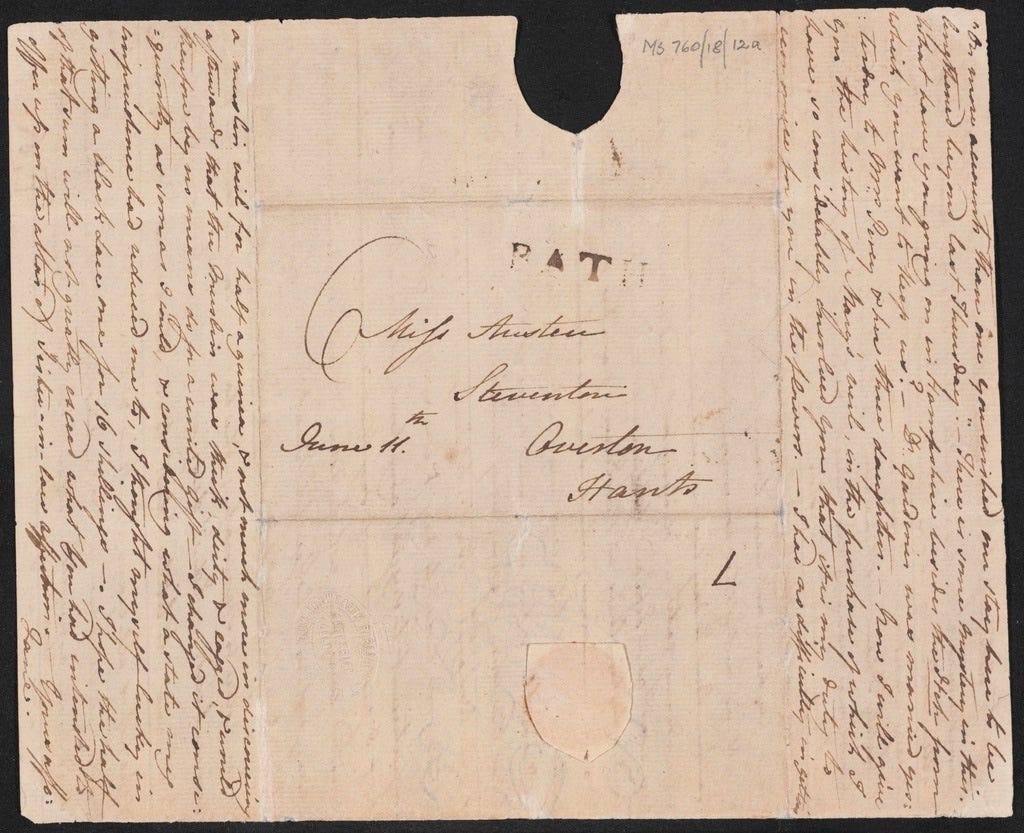 MS 760/18/12a
BATH
6
Miss Austen
Steventon
June 11.th
Overton
Hants
L
on more accounts than one you wished our stay here to be
lengthened beyond last Thursday.— There is some Mystery in this.
What have you going on in Hampshire besides the Itch from
which you want to keep us?— Dr. Gardiner was married yes:
:terday to Mrs Percy & her three daughters.— Now I will give
you the history of Mary's veil, in the purchase of which I
have so considerably involved you that it is my duty to
economise for you in the flowers.— I had no difficulty in getting
a muslin veil for half a guinea, & not much more in discovering
afterwards that the Muslin was thick, dirty & ragged, & would
therefore by no means do for a united Gift.— I changed it conse:
:quently as soon as I could, & considering what a state my
imprudence had reduced me to, I thought myself lucky in
getting a black Lace one for 16 shillings—. I hope the half
of that sum will not greatly exceed what You had intended to
offer up on the altar of Sister-in-law affection.— Yours affec:
Jane.